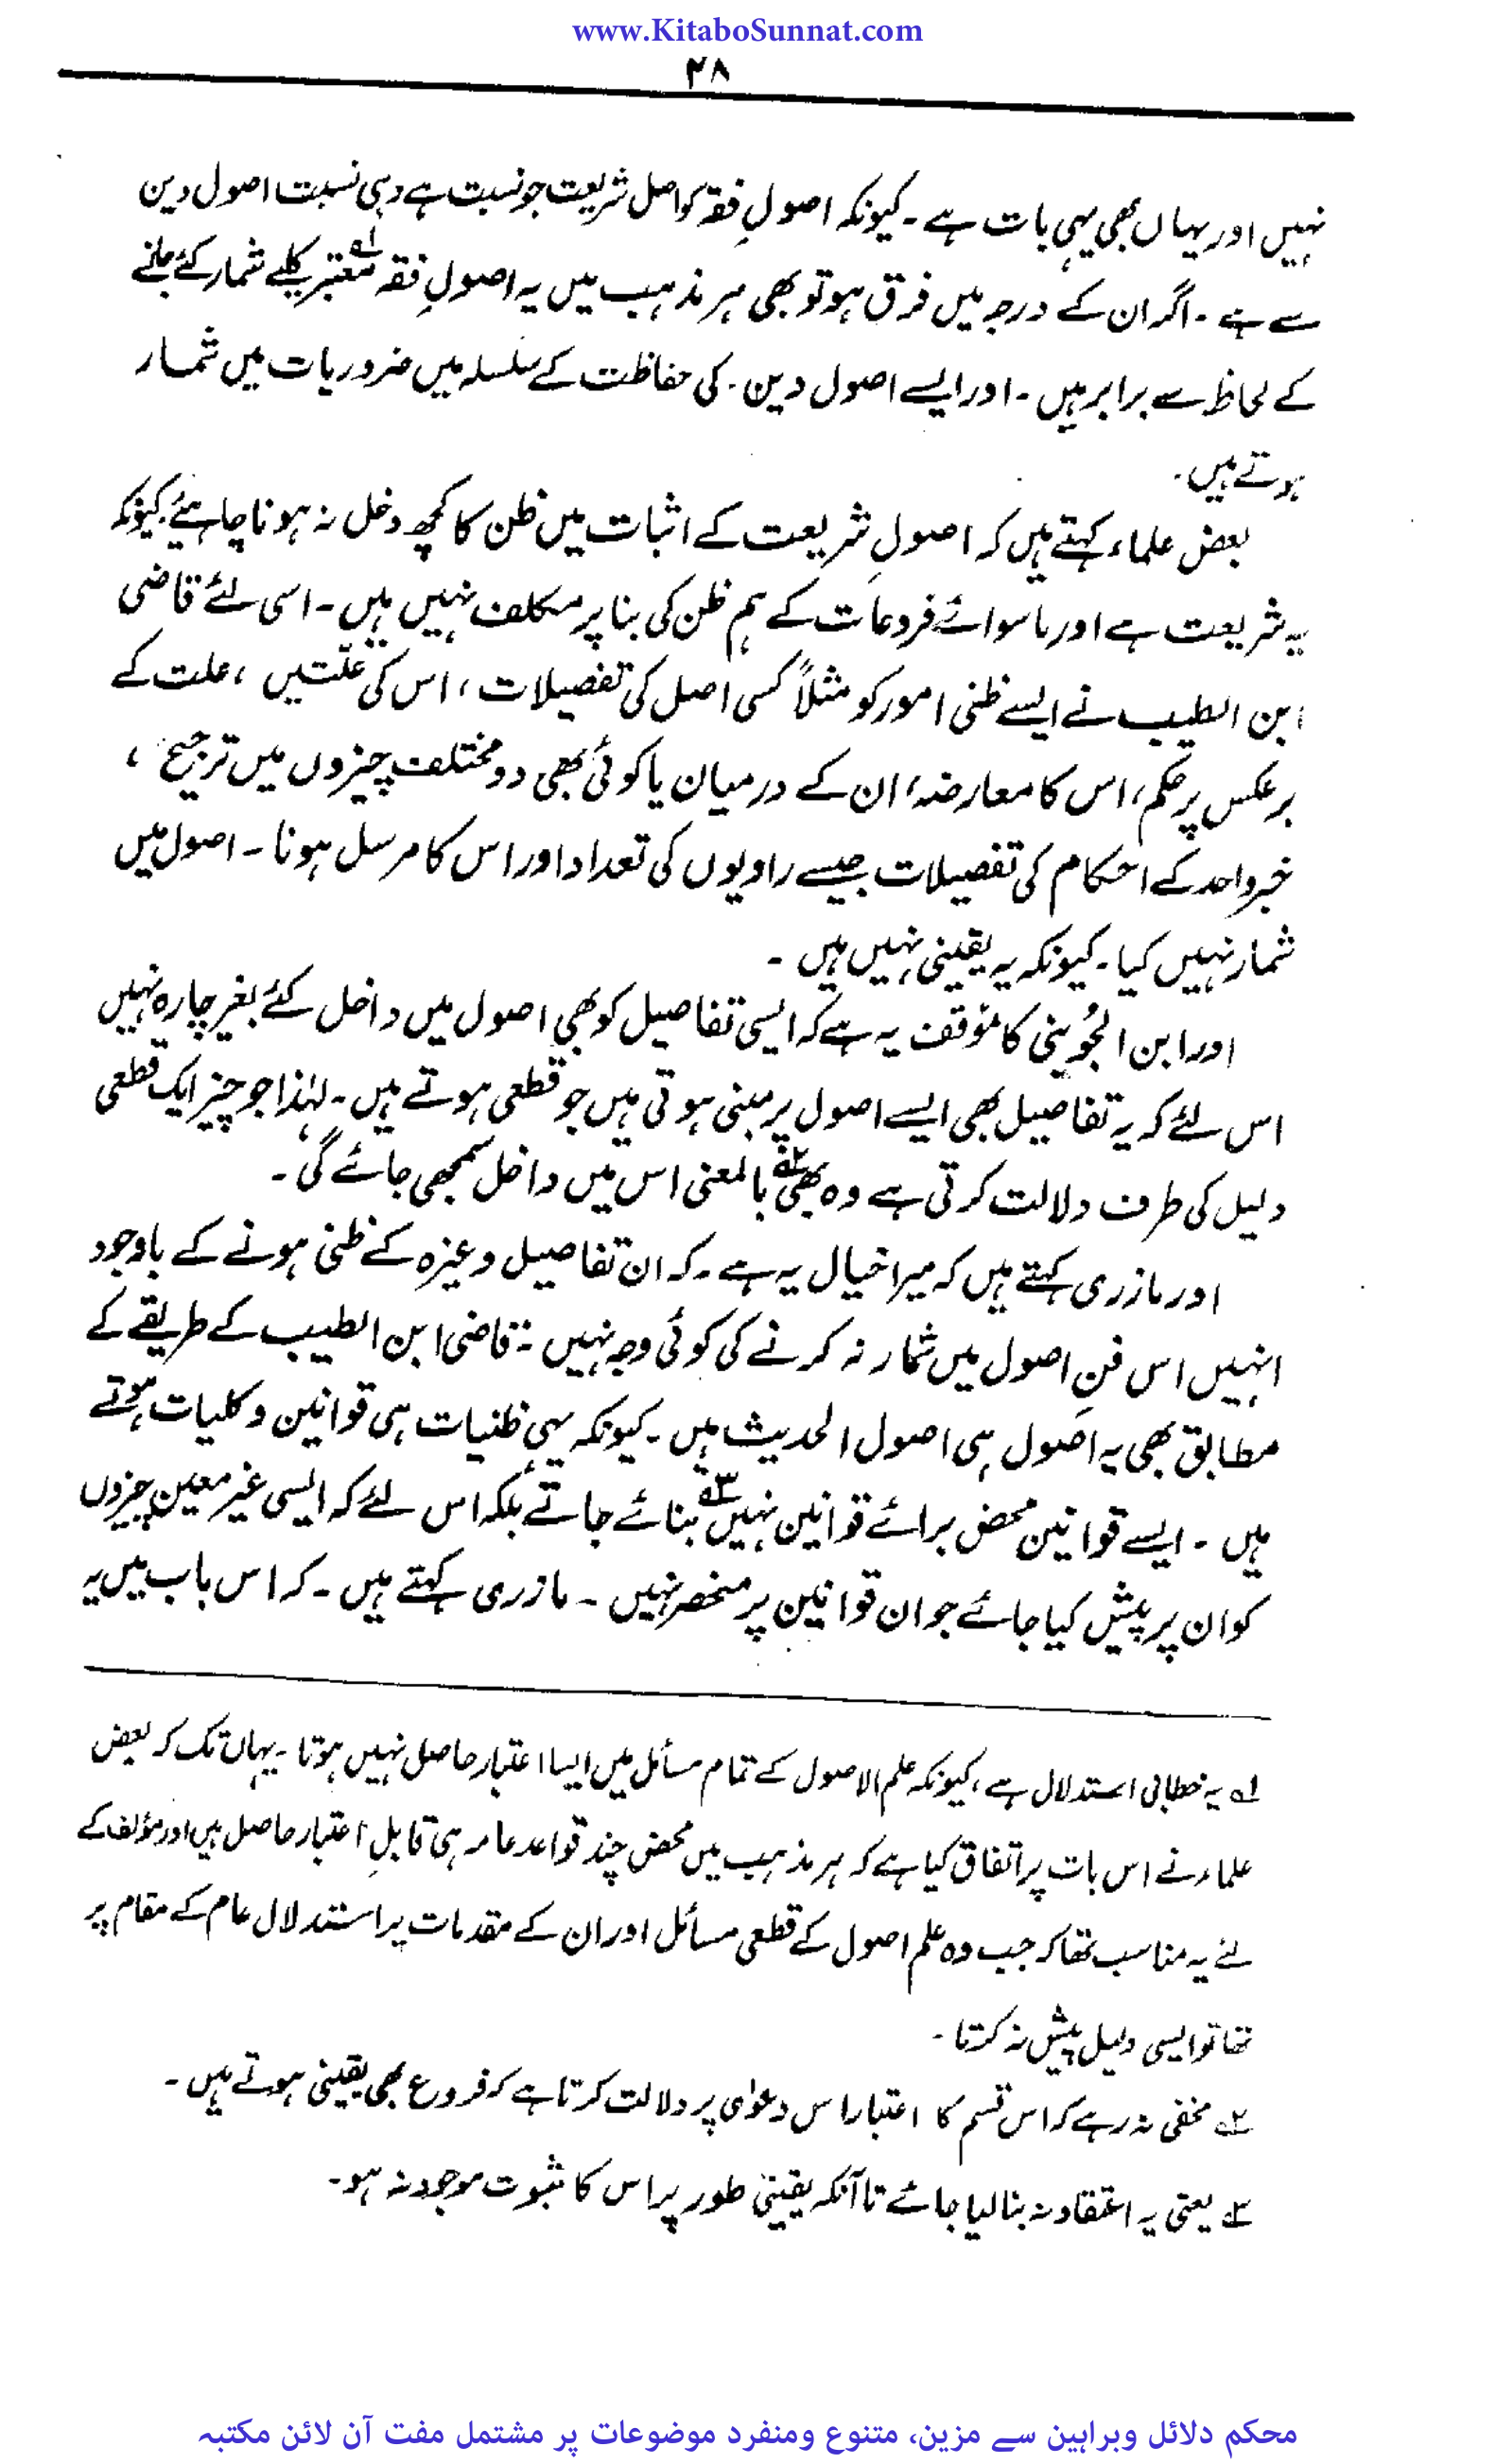 www.KitaboSunnat.com
۲۸
نہیں اور یہاں بھی یہی بات ہے ۔ کیونکہ اصولِ فقہ کو اصل شریعت جو نسبت ہے وہی نسبت اصول دین
سے ہے ۔ اگر ان کے درجہ میں فرق ہو تو بھی ہر مذہب میں یہ اصولِ فقہ معتبر کلیے شمار کئے جانے
کے لحاظ سے برابر ہیں ۔ اور ایسے اصول دین ۔ کی حفاظت کے سلسلہ میں ضروریات میں شمار
ہوتے ہیں ۔
بعض علماء کہتے ہیں کہ اصولِ شریعت کے اثبات میں ظن کا کچھ دخل نہ ہونا چاہیئے ۔ کیونکہ
یہ شریعت ہے اور ماسوائے فروعات کے ہم ظن کی بنا پر مکلف نہیں ہیں ۔ اسی لئے قاضی
ابن الطیب نے ایسے ظنی امور کو مثلاً کسی اصل کی تفصیلات ، اس کی علّتیں ، علت کے
برعکس پر حکم ، اس کا معارضہ ، ان کے درمیان یا کوئی بھی دو مختلف چیزوں میں ترجیح ،
خبر واحد کے احکام کی تفصیلات جیسے راویوں کی تعداد اور اس کا مرسل ہونا ۔ اصول میں
شمار نہیں کیا ۔ کیونکہ یہ یقینی نہیں ہیں ۔
اور ابن الجُوینی کا مؤقف یہ ہے کہ ایسی تفاصیل کو بھی اصول میں داخل کئے بغیر چارہ نہیں
اس لئے کہ یہ تفاصیل بھی ایسے اصول پر مبنی ہوتی ہیں جو قطعی ہوتے ہیں ۔ لہٰذا جو چیز ایک قطعی
دلیل کی طرف دلالت کرتی ہے وہ بھی۲ بالمعنی اس میں داخل سمجھی جائے گی ۔
اور مازری کہتے ہیں کہ میرا خیال یہ ہے ۔ کہ ان تفاصیل وغیرہ کے ظنی ہونے کے باوجود
انہیں اس فنِ اصول میں شمار نہ کرنے کی کوئی وجہ نہیں ۔ قاضی ابن الطیب کے طریقے کے
مطابق بھی یہ اصول ہی اصول الحدیث ہیں ۔ کیونکہ یہی ظنیات ہی قوانین و کلیات ہوتے
ہیں ۔ ایسے قوانین محض برائے قوانین نہیں۳ بنائے جاتے بلکہ اس لئے کہ ایسی غیر معین چیزوں
کو ان پر پیش کیا جائے جو ان قوانین پر منحصر نہیں ۔ مازری کہتے ہیں ۔ کہ اس باب میں یہ
۱ یہ خطابی استدلال ہے ، کیونکہ علم الاصول کے تمام مسائل میں ایسا اعتبار حاصل نہیں ہوتا ۔ یہاں تک کہ بعض
علماء نے اس بات پر اتفاق کیا ہے کہ ہر مذہب میں محض چند قواعد عامہ ہی قابلِ اعتبار حاصل ہیں اور مؤلف کے
لئے یہ مناسب تھا کہ جب وہ علم اصول کے قطعی مسائل اور ان کے مقدمات پر استدلال عام کے مقام پر
تھا تو ایسی دلیل پیش نہ کرتا ۔
۲ مخفی نہ رہے کہ اس قسم کا اعتبار اس دعوٰی پر دلالت کرتا ہے کہ فروع بھی یقینی ہوتے ہیں ۔
۳ یعنی یہ اعتقاد نہ بنا لیا جائے تاآنکہ یقینی طور پر اس کا ثبوت موجود نہ ہو ۔
محکم دلائل وبراہین سے مزین، متنوع ومنفرد موضوعات پر مشتمل مفت آن لائن مکتبہ